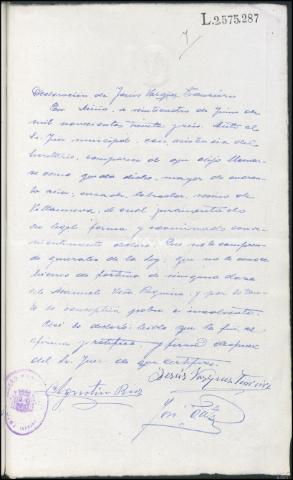 L.2.575.287
Declaración de Jesús Vázquez Teixeiro
En Miño, a veintecuatro de Junio de
mil novecientos treinta y seis. Ante el
Sr. Juez municipal, con asistencia del
Secretario, compareció el que dijo llamar-
se como queda dicho, mayor de
años, casado, labrador, vecino de
Villanueva, el cual juramentado
en legal forma y examinado conve-
nientemente declaró: Que no le comprenden
generales de la ley: que no le conoce
bienes de fortuna de ninguna clase
a Manuel y por lo tan-
to le conceptúa pobre e insolvente.
Así lo declaró: leído que le fué, se
afirma y ratifica, y firma después
del Sr. Juez de que certifico.
Jesús Vázquez Teixeiro
Agustín
José